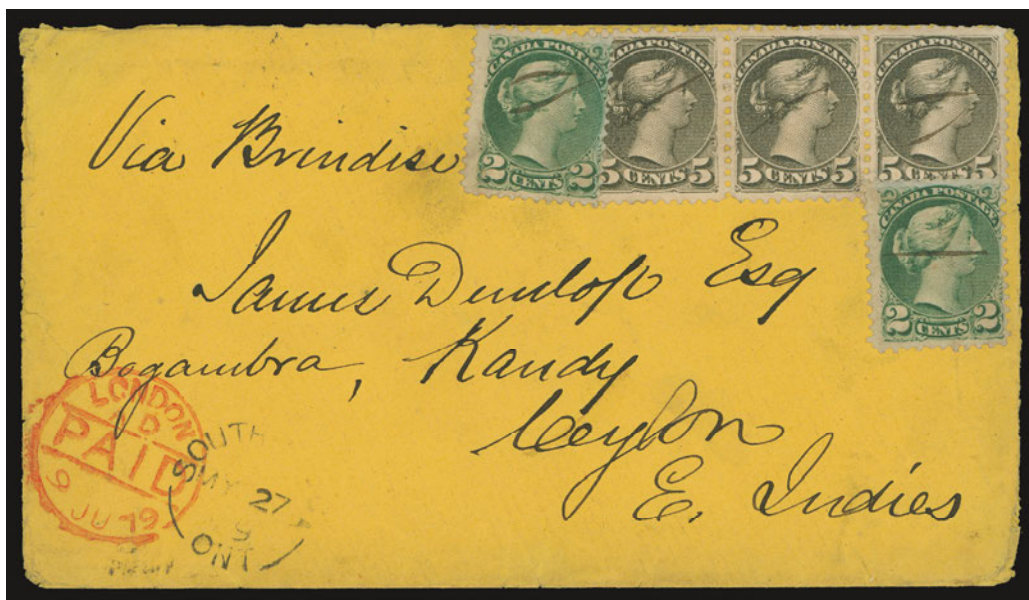 CANADA POSTAGE
2 CENTS 2
ADA POSTAGE
5 CENTS 5
CANADA POSTAGE
5 CENTS 5
CANADA POSTAGE
5 CENTS 5
CANADA POSTAGE
2 CENTS 2
Via Brindise
James Dunlop Esq
Bogambra, Kandy
Ceylon
E. Indies
LONDON
PAID
9 JU 79
SOUTH
MY 27
ONT